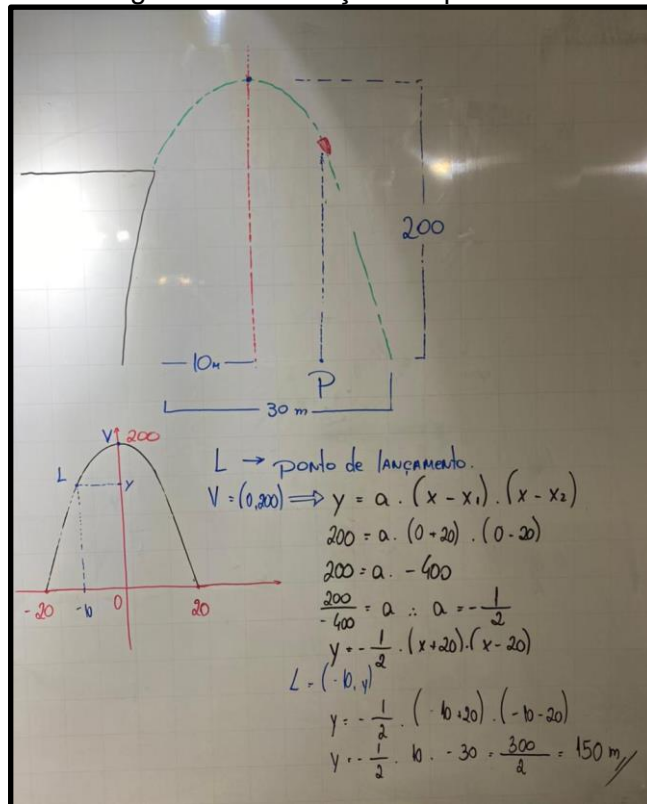 200
10m
P
30 m
V 200
L
y
-20 -10 0 20
L → ponto de lançamento.
V = (0,200) ⟹ y = a . (x - x₁) . (x - x₂)
200 = a . (0 + 20) . (0 - 20)
200 = a . - 400
200/-400 = a ∴ a = - 1/2
y = - 1/2 . (x+20).(x - 20)
L = (-10, y)
y = - 1/2 . (-10+20) . (-10-20)
y = - 1/2 . 10 . - 30 = 300/2 = 150 m //